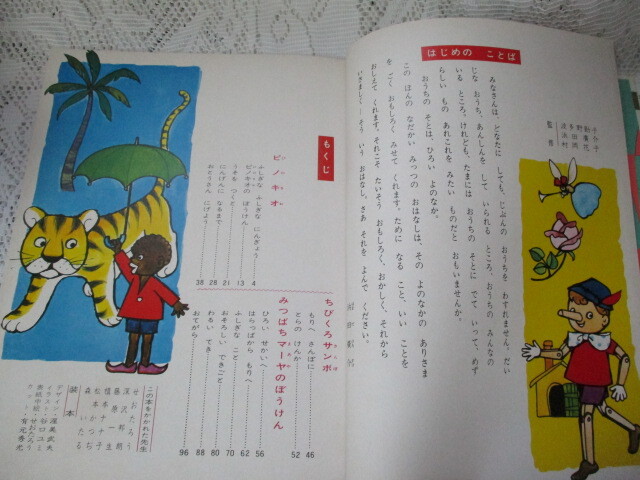 はじめの ことば
みなさんは、どなたに しても、じぶんの おうちを わすれません。だい
じな おうち、あんしんを して いられる ところ、おうちの みんなの
いる ところ、けれども、たまには おうちの そとに でて いって、めず
らしい もの あれこれを みたい ものだと おもいませんか。
おうちの そとは、ひろい よのなか。
この ほんの なだかい みっつの おはなしは、その よのなかの ありさま
を ごく おもしろく みせて くれます。ために なる こと、いい ことを
おしえて くれます。それこそ たいそう おもしろく、おかしく、それから
いさましく―そう いう おはなし。さあ それを よんで ください。
もくじ
ピノキオ
ふしぎな ふしぎな にんぎょう
4
ピノキオの ぼうけん
13
うそを つくと…
21
にんげんに なるまで
28
おとうさん にげよう
38
ちびくろサンボ
もりへ さんぽに
46
とらの けんか
52
みつばち マーヤのぼうけん
ひろい せかいへ
56
はらっぱから もりへ
62
ふしぎな こと
70
おそろしい できごと
80
わるい てき
88
おてがら
96
この本をかかれた先生
せおたろう
深沢邦朗
藤原一生
植木ナナ子
松本かつぢ
森いたる
装本
デザイン・渥美武夫
イラスト・谷口ユミ
表紙中絵・せおたろう
カット・有元秀光